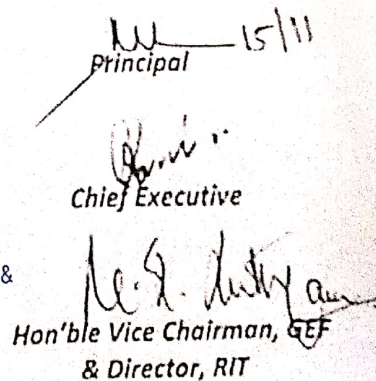 15/11
Principal
Chief Executive
&
Hon'ble Vice Chairman, GEF
& Director, RIT